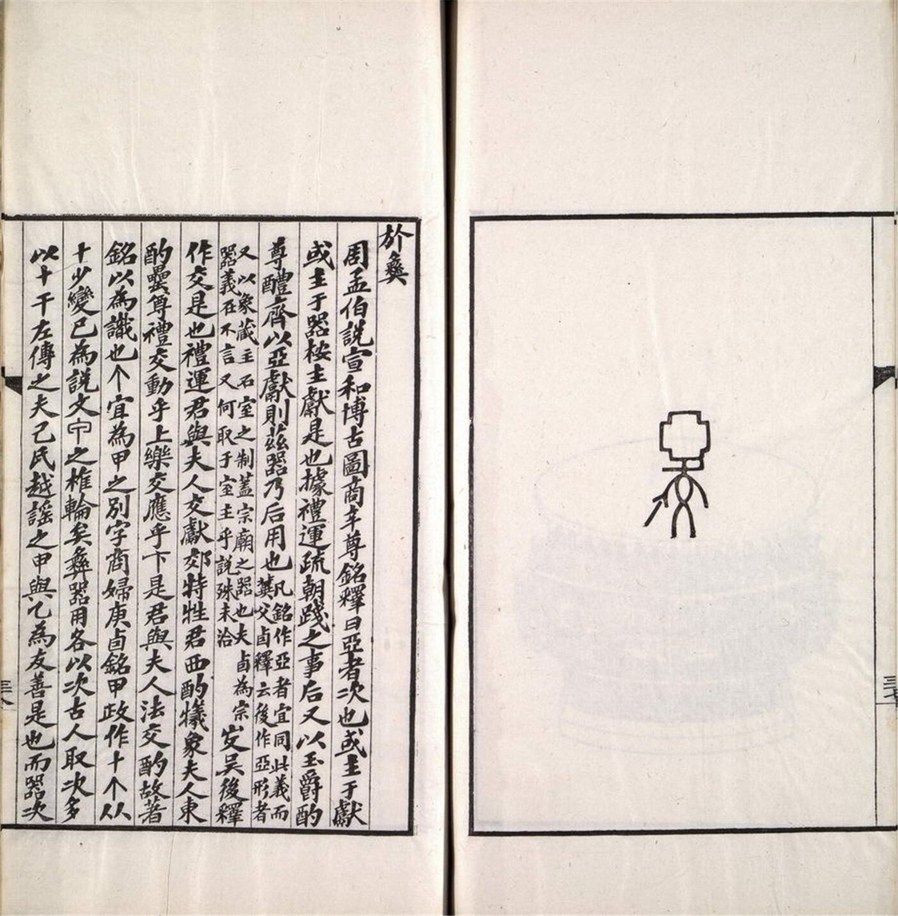 於彝
周孟伯說宣和博古圖商辛尊銘釋曰亞者次也或主于獻
或主于器桉主獻是也據禮運疏朝踐之事后又以玉爵酌
尊醴齊以亞獻則茲器乃后用也凡銘作亞者宜同此義而
龔父卣釋云後作亞形者
又以象藏主石室之制蓋宗廟之器也夫卣為宗
器義在不言又何取于室主乎說殊未洽
安吴後釋
作交是也禮運君與夫人交獻郊特牲君西酌犧象夫人東
酌罍尊禮交動乎上樂交應乎下是君與夫人法交酌故著
銘以為識也个宜為甲之別字商婦庚卣銘甲政作十个从
十少變已為說文中之椎輪矣彝器用各以次古人取次多
以十干左傳之夫己氏越謠之甲與乙為友善是也而器次